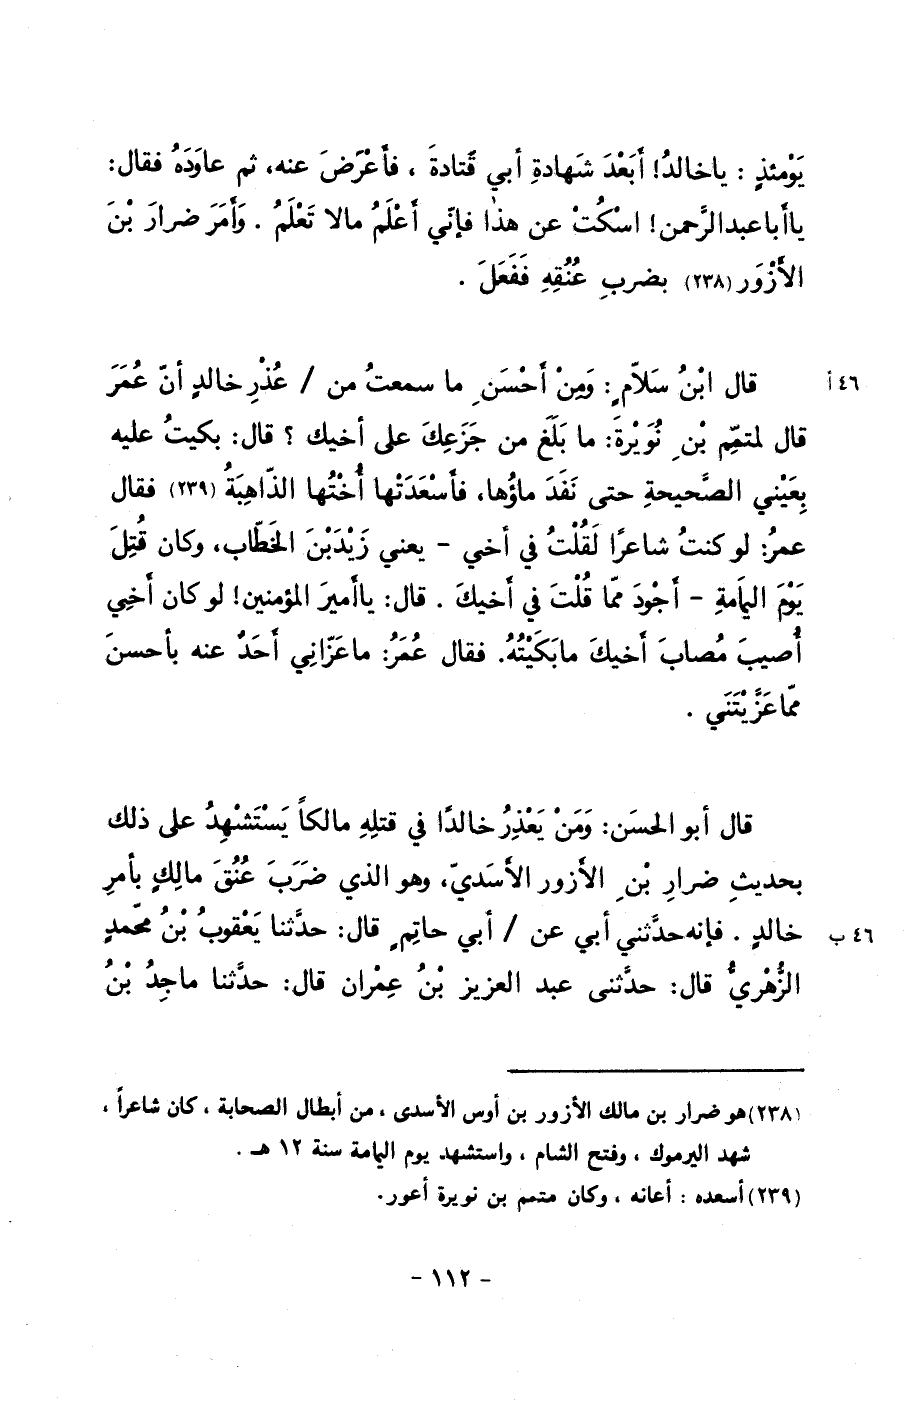 يَوْمئذٍ : ياخالدُ! أَبَعْدَ شَهادةِ أبي قَتادةَ ، فأَعْرَضَ عنه، ثم عاوَدَهُ فقال:
ياأَباعبدالرَّحمن! اسْكُتْ عن هذا فإنّي أَعْلَمُ مالا تَعْلَمُ . وَأَمَرَ ضرارَ بْنَ
الأَزْوَر (٢٣٨) بضربِ عُنُقِهِ فَفَعَلَ .
قال ابْنُ سَلاّمٍ: وَمِنْ أَحْسَنِ ما سمعتُ من / عُذْرِ خالدٍ أنّ عُمَرَ
٤٦ أ
قال لمتمِّم بْنِ نُوَيْرةَ: ما بَلَغَ من جَزَعِكَ على أخيك ؟ قال: بكيتُ عليه
بِعَيْني الصَّحيحةِ حتى نَفَدَ ماؤُها، فأَسْعَدَتْها أُخْتُها الذّاهِبَةُ (٢٣٩) فقال
عمرُ: لو كنتُ شاعرًا لَقُلْتُ في أخي - يعني زَيْدَبْنَ الخَطّاب، وكان قُتِلَ
يَوْمَ اليَمَامةِ - أَجْوَدَ ممّا قُلْتَ في أخيكَ . قال: ياأميرَ المؤمنين! لو كان أَخِي
أُصيبَ مُصابَ أَخيكَ مابَكَيْتُهُ. فقال عُمَرُ: ماعَزّانِي أَحَدٌ عنه بأحسنَ
ممّاعَزَّيْتَنَي .
قال أبو الحسَن: وَمَنْ يَعْذِرُ خالدًا في قتلِهِ مالكاً يَسْتَشْهِدُ على ذلك
بحديثِ ضرارِ بْنِ الأَزور الأَسَديّ، وهو الذي ضَرَبَ عُنُقَ مالِكٍ بأمرِ
خالدٍ . فإنه حدَّثني أبي عن / أبي حاتِمٍ قال: حدَّثنا يَعْقوبُ بْنُ محمّدٍ
٤٦ ب
الزُّهْريُّ قال: حدَّثنى عبد العزيز بْنُ عِمْران قال: حدَّثنا ماجِدُ بْنُ
(٢٣٨)هو ضرار بن مالك الأزور بن أوس الأسدى ، من أبطال الصحابة ، كان شاعراً ،
شهد اليرموك ، وفتح الشام ، واستشهد يوم اليمامة سنة ١٢ هـ .
(٢٣٩)أسعده : أعانه ، وكان متمم بن نويرة أعور.
- ١١٢ -